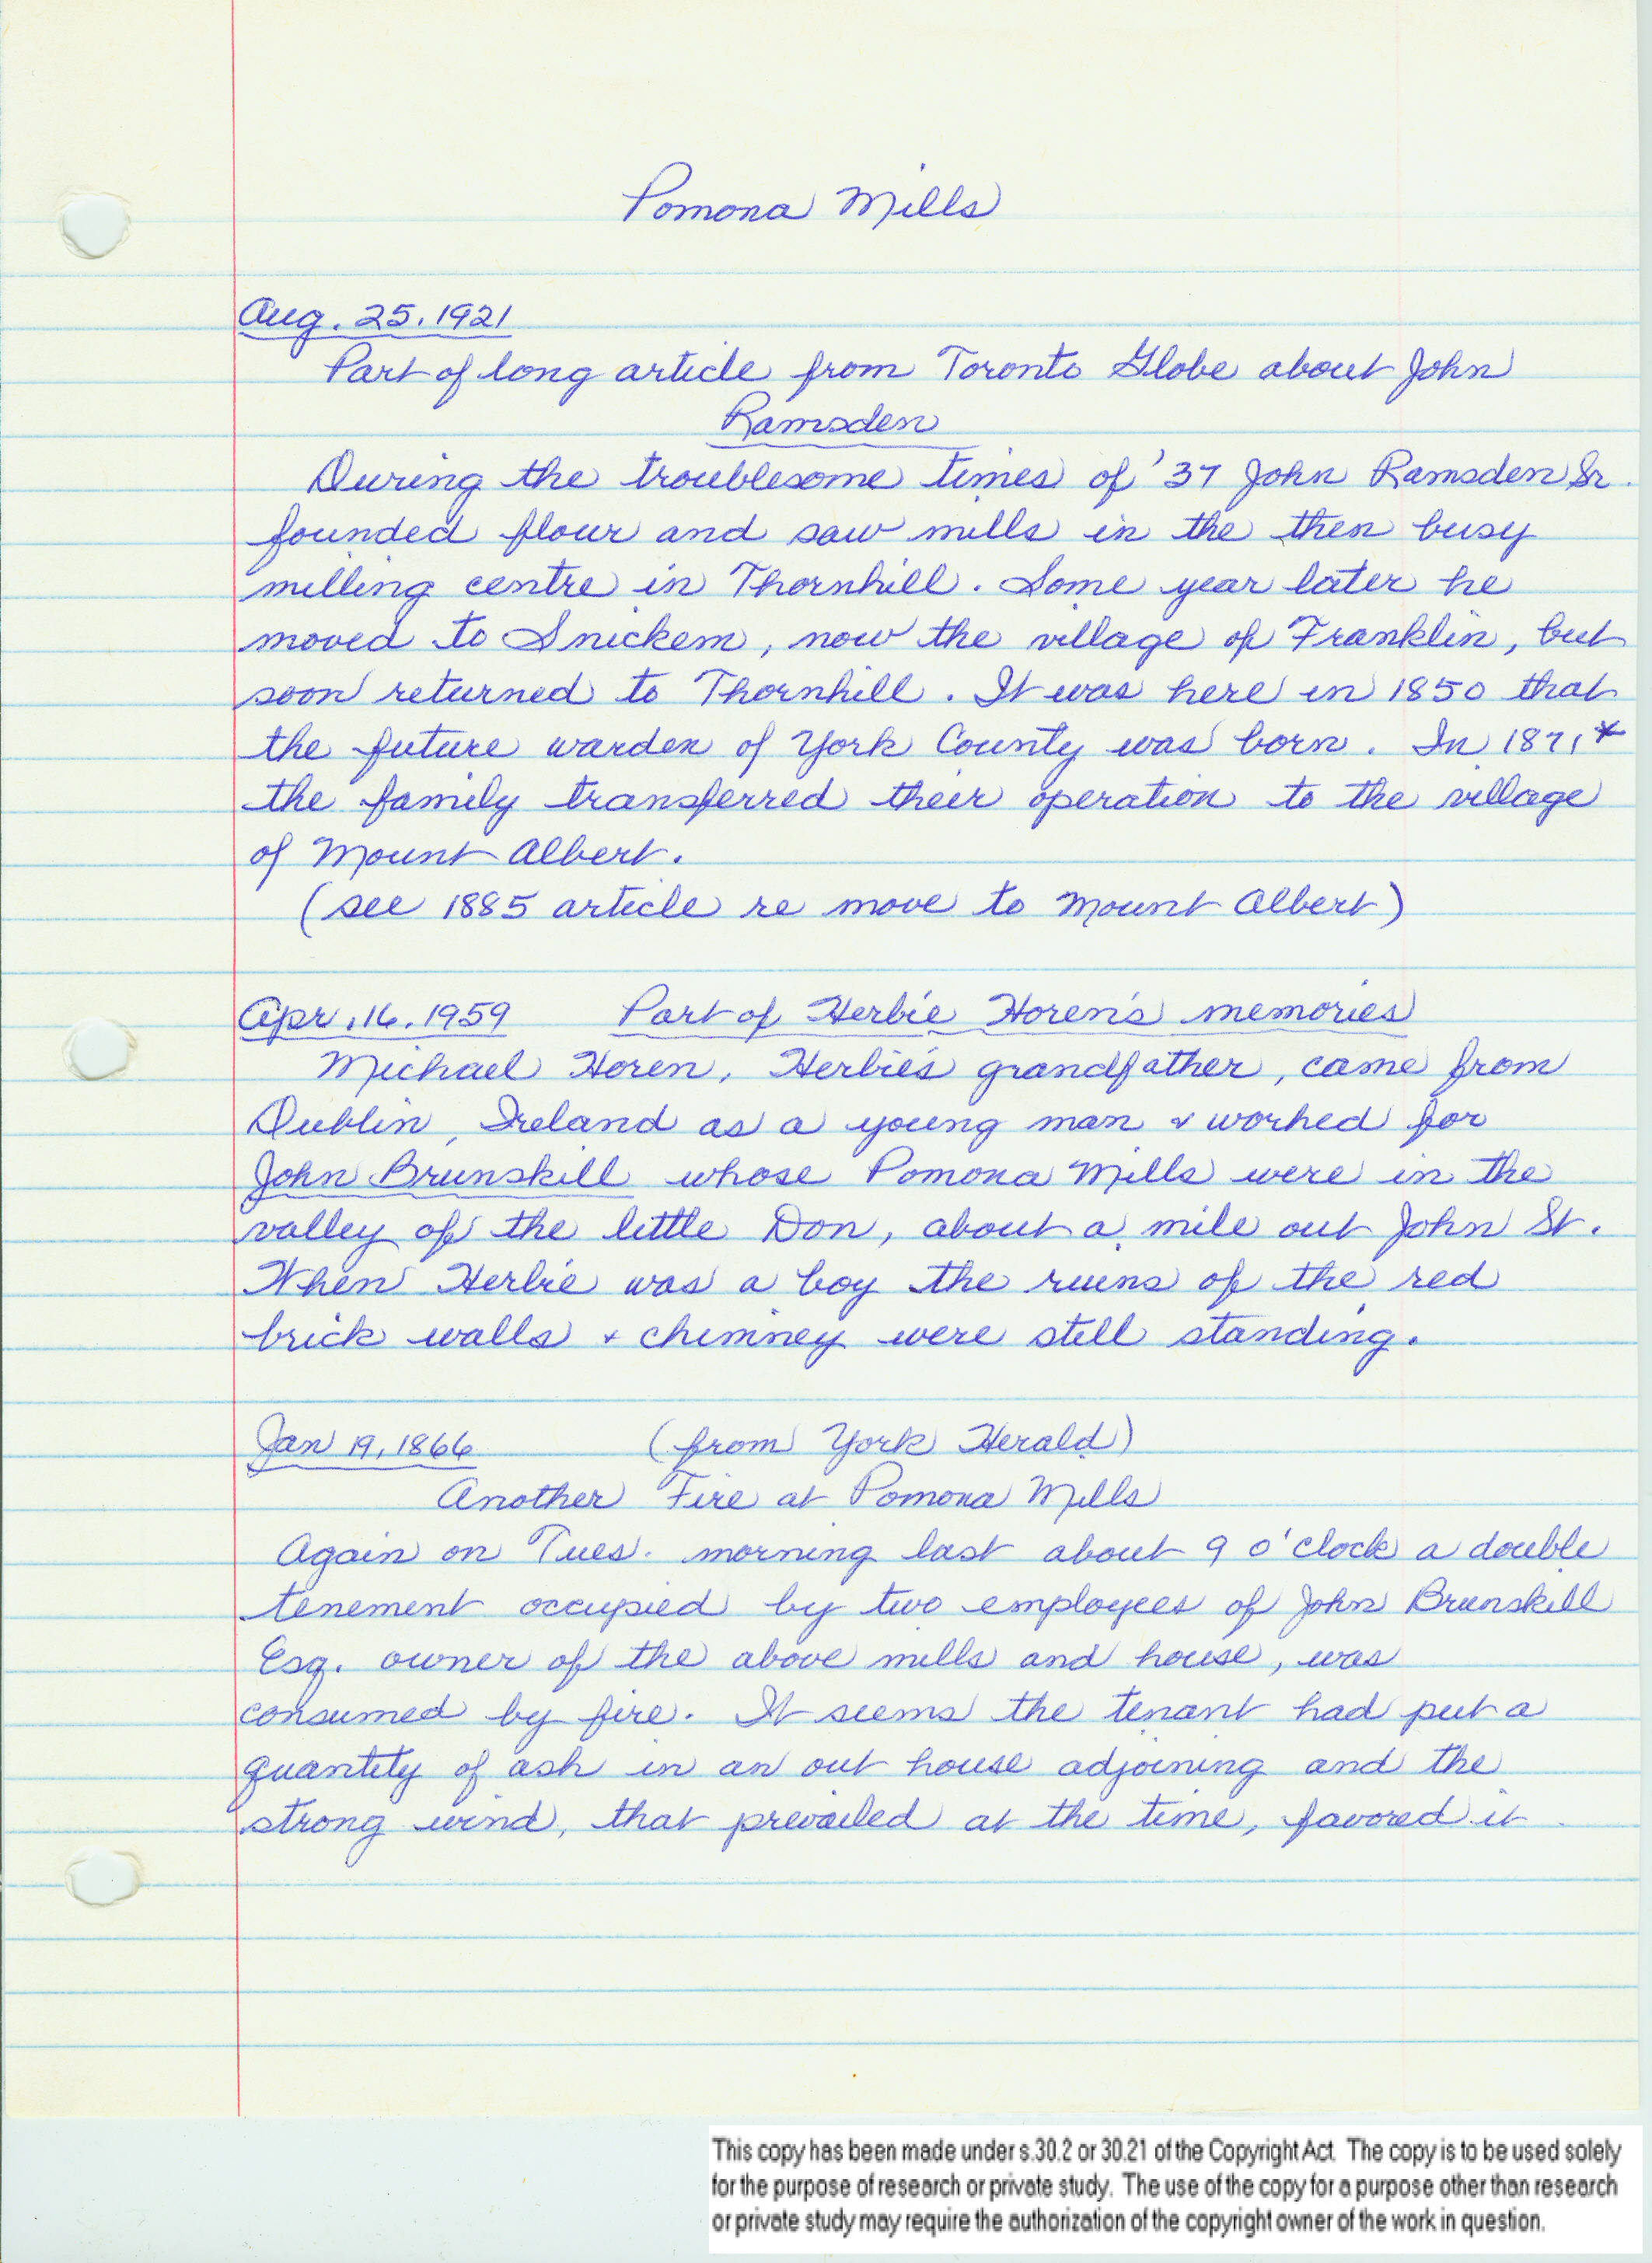 Pomona Mills
Aug. 25, 1921
Part of long article from Toronto Globe about John
Ramsden
During the troublesome times of '37 John Ramsden Sr.
founded flour and saw mills in the then busy
milling centre in Thornhill. Some year later he
moved to Snickem, now the village of Franklin, but
soon returned to Thornhill. It was here in 1850 that
the future warden of York County was born. In 1871*
the family transferred their operation to the village
of Mount Albert.
(see 1885 article re move to Mount Albert)
Apr. 16, 1959 Part of Herbie Horen's memories
Michael Horen, Herbie's grandfather, came from
Dublin, Ireland as a young man & worked for
John Brunskill whose Pomona Mills were in the
valley of the little Don, about a mile out John St.
When Herbie was a boy the ruins of the red
brick walls & chimney were still standing.
Jan 19, 1866 (from York Herald)
Another Fire at Pomona Mills
Again on Tues. morning last about 9 o'clock a double
tenement occupied by two employees of John Brunskill
Esq. owner of the above mills and house, was
consumed by fire. It seems the tenant had put a
quantity of ash in an out house adjoining and the
strong wind, that prevailed at the time, favored it
This copy has been made under s.30.2 or 30.21 of the Copyright Act. The copy is to be used solely
for the purpose of research or private study. The use of the copy for a purpose other than research
or private study may require the authorization of the copyright owner of the work in question.